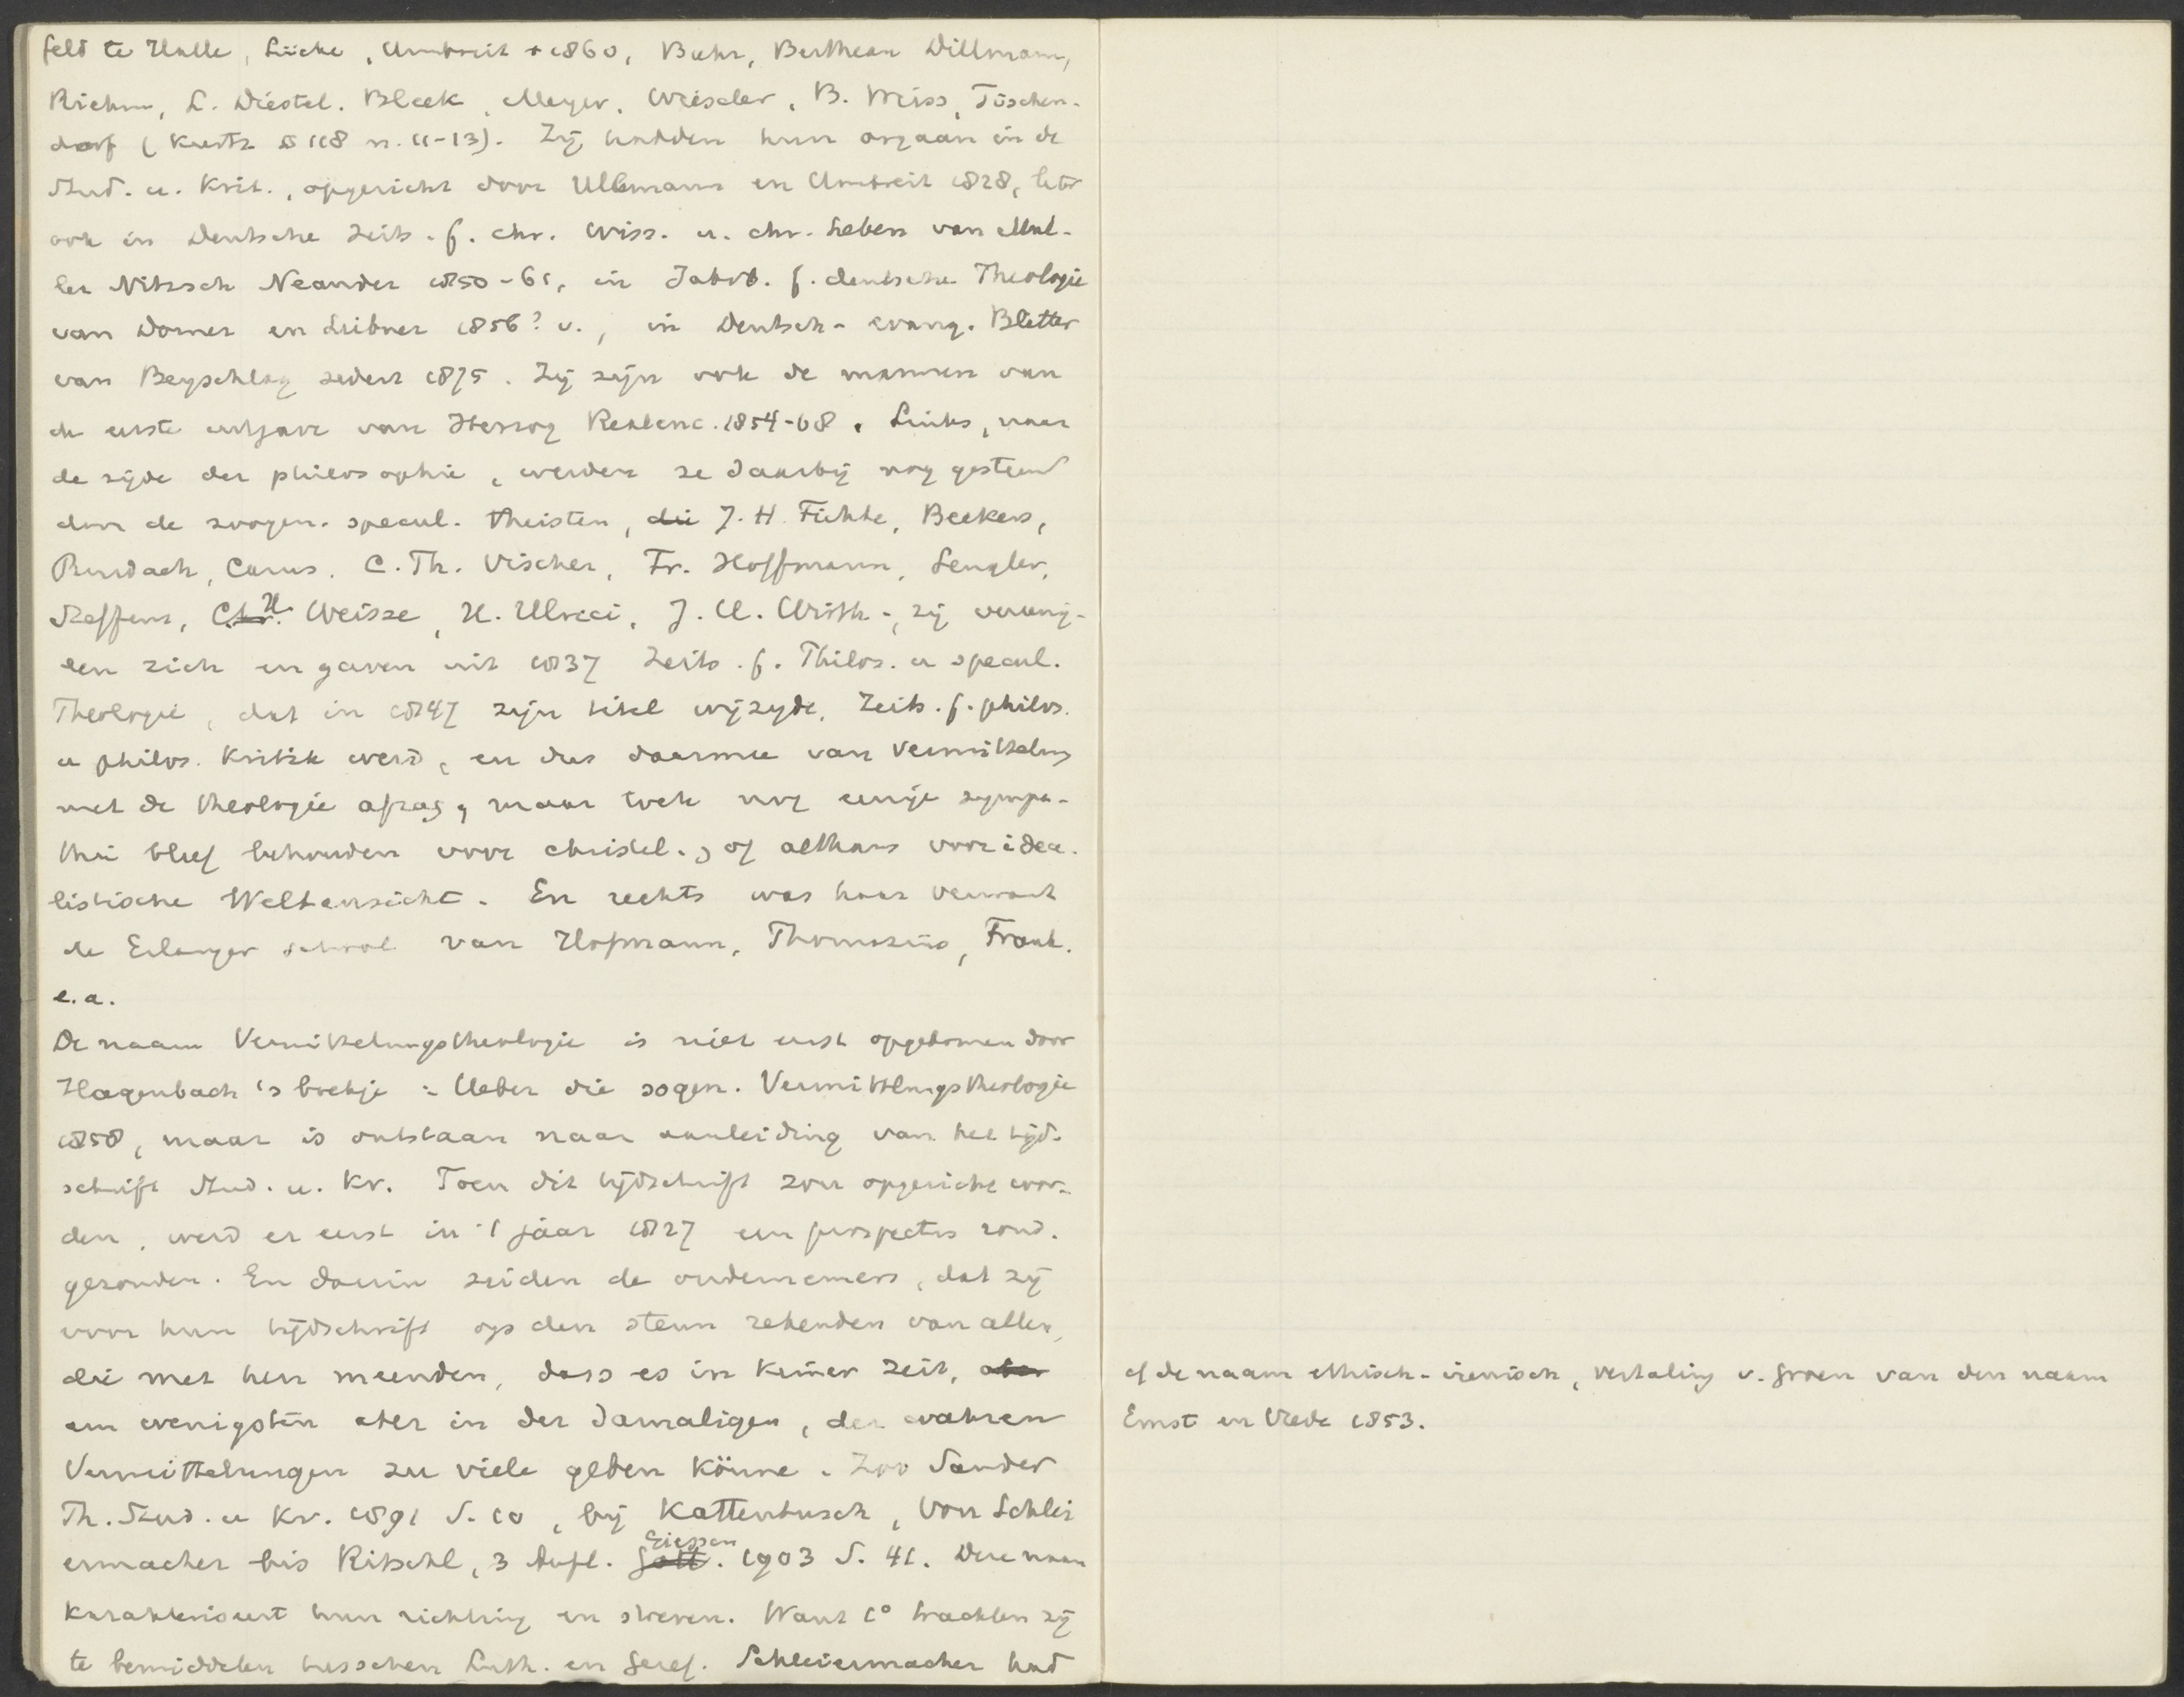 feld te Halle, Lücke, Umbreit + 1860, Bähr, Bertheau Dillmann,
Riehm, L. Diestel. Bleek, Meyer, Wieseler, B. Weiss, Tischen-
dorf (Kurtz § 178 n. 11-13). Zij hadden hun orgaan in de
Stud. u. Krit., opgericht door Ullmann en Umbreit 1828, later
ook in Deutsche Zeits. f. chr. Wiss. u. chr. Leben van Mül-
ler Nitzsch Neander 1850-61, in Jahrb. f. deutsche Theologie
van Dorner en Liebner 1856? v., in Deutsch-evang. Blätter
van Beyschlag sedert 1875. Zij zijn ook de mannen van
de eerste uitgave van Herzog Realenc. 1854-68. Links, naar
de zijde der philosophie, werden ze daarbij nog gesteund
door de zoogen. specul. theisten, die J. H. Fichte, Beckers,
Burdach, Carus, C. Th. Vischer, Fr. Hoffmann, Sengler,
Steffens, Chr. H. Weisse, H. Ulrici, J. U. Wirth -, zij vereenig-
den zich en gaven uit 1837 Zeits. f. Philos. u specul.
Theologie, dat in 1847 zijn titel wijzigde, Zeits. f. philos.
u philos. Kritik werd, en dus daarmee van Vermittelung
met de theologie afzag, maar toch nog eenige sympa-
thie bleef behouden voor christel., of althans voor idea-
listische Weltansicht. En rechts was haar verwant
de Erlanger school van Hofmann, Thomasius, Frank.
e.a.
De naam Vermittelungstheologie is niet eerst opgekomen door
Hagenbach's boekje: Ueber die sogen. Vermittlungstheologie
1858, maar is ontstaan naar aanleiding van het tijd-
schrift Stud. u. Kr. Toen dit tijdschrift zou opgericht wor-
den, werd er eerst in 't jaar 1827 een prospectus rond-
gezonden. En daarin zeiden de ondernemers, dat zij
voor hun tijdschrift op den steun rekenden van allen,
die met hen meenden, dass es in keiner Zeit, aber
am wenigsten aber in der damaligen, der wahren
Vermittelungen zu viele geben könne. Zoo Sander
Th. Stud. u Kr. 1891 S. 10, bij Kattenbusch, Von Schlei
ermacher bis Ritschl, 3 Aufl. Gött. Giessen 1903 S. 41. Deze naam
karakteriseert hun richting en streven. Want 1° trachten zij
te bemiddelen tusschen Luth. en Geref. Schleiermacher had
cf de naam ethisch-irenisch, vertaling v. Groen van den naam
Ernst en Vrede 1853.